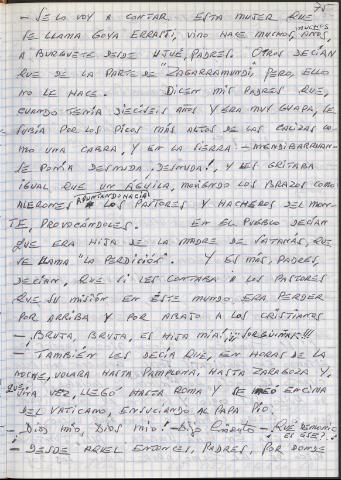 75
- SE LO VOY A CONTAR. ESTA MUJER QUE
SE LLAMA GOYA ERRASTI, VINO HACE MUCHOS, MUCHOS AÑOS,
A BURGUETE DESDE UJUÉ, PADRES. OTROS DECÍAN
QUE DE LA PARTE DE "ZAGARRAMUNDI", PERO, ELLO
NO LE HACE. DICEN MIS PADRES QUE,
CUANDO TENÍA DIECISÉIS AÑOS Y ERA MUY GUAPA, SE
SUBÍA POR LOS PICOS MÁS ALTOS DE LAS CALIZAS CO-
MO UNA CABRA, Y EN LA SIERRA - MENDIBARRUAN -
SE PONÍA DESNUDA, DESNUDA!, Y LES GRITABA
IGUAL QUE UN ÁGUILA, MOVIENDO LOS BRAZOS COMO
ALERONES APUNTANDO HACIA LOS PASTORES Y HACHEROS DEL MON-
TE, PROVOCÁNDOLES. EN EL PUEBLO DECÍAN
QUE ERA HIJA DE LA MADRE DE SATANAS, QUE
SE LLAMA "LA PERDICIÓN". Y ES MÁS, PADRES,
DECÍAN, QUE SI LES CONTABA A LOS PASTORES
QUE SU MISIÓN EN ÉSTE MUNDO, ERA PERDER
POR ARRIBA Y POR ABAJO A LOS CRISTIANOS
- BRUJA, BRUJA, ES HIJA MÍA! ¡¡¡SORGUIÑAK!!!
- TAMBIÉN LES DECÍA QUE, EN HORAS DE LA
NOCHE, VOLABA HASTA PAMPLONA, HASTA ZARAGOZA Y,
QUE, UNA VEZ, LLEGÓ HASTA ROMA Y SE MEÓ ENCIMA
DEL VATICANO, ENSUCIANDO AL PAPA PÍO.
- DIOS MÍO, DIOS MÍO! - DIJO - QUE DEMONIO
ES ESE?
- DESDE AQUEL ENTONCES, PADRES, POR DONDE